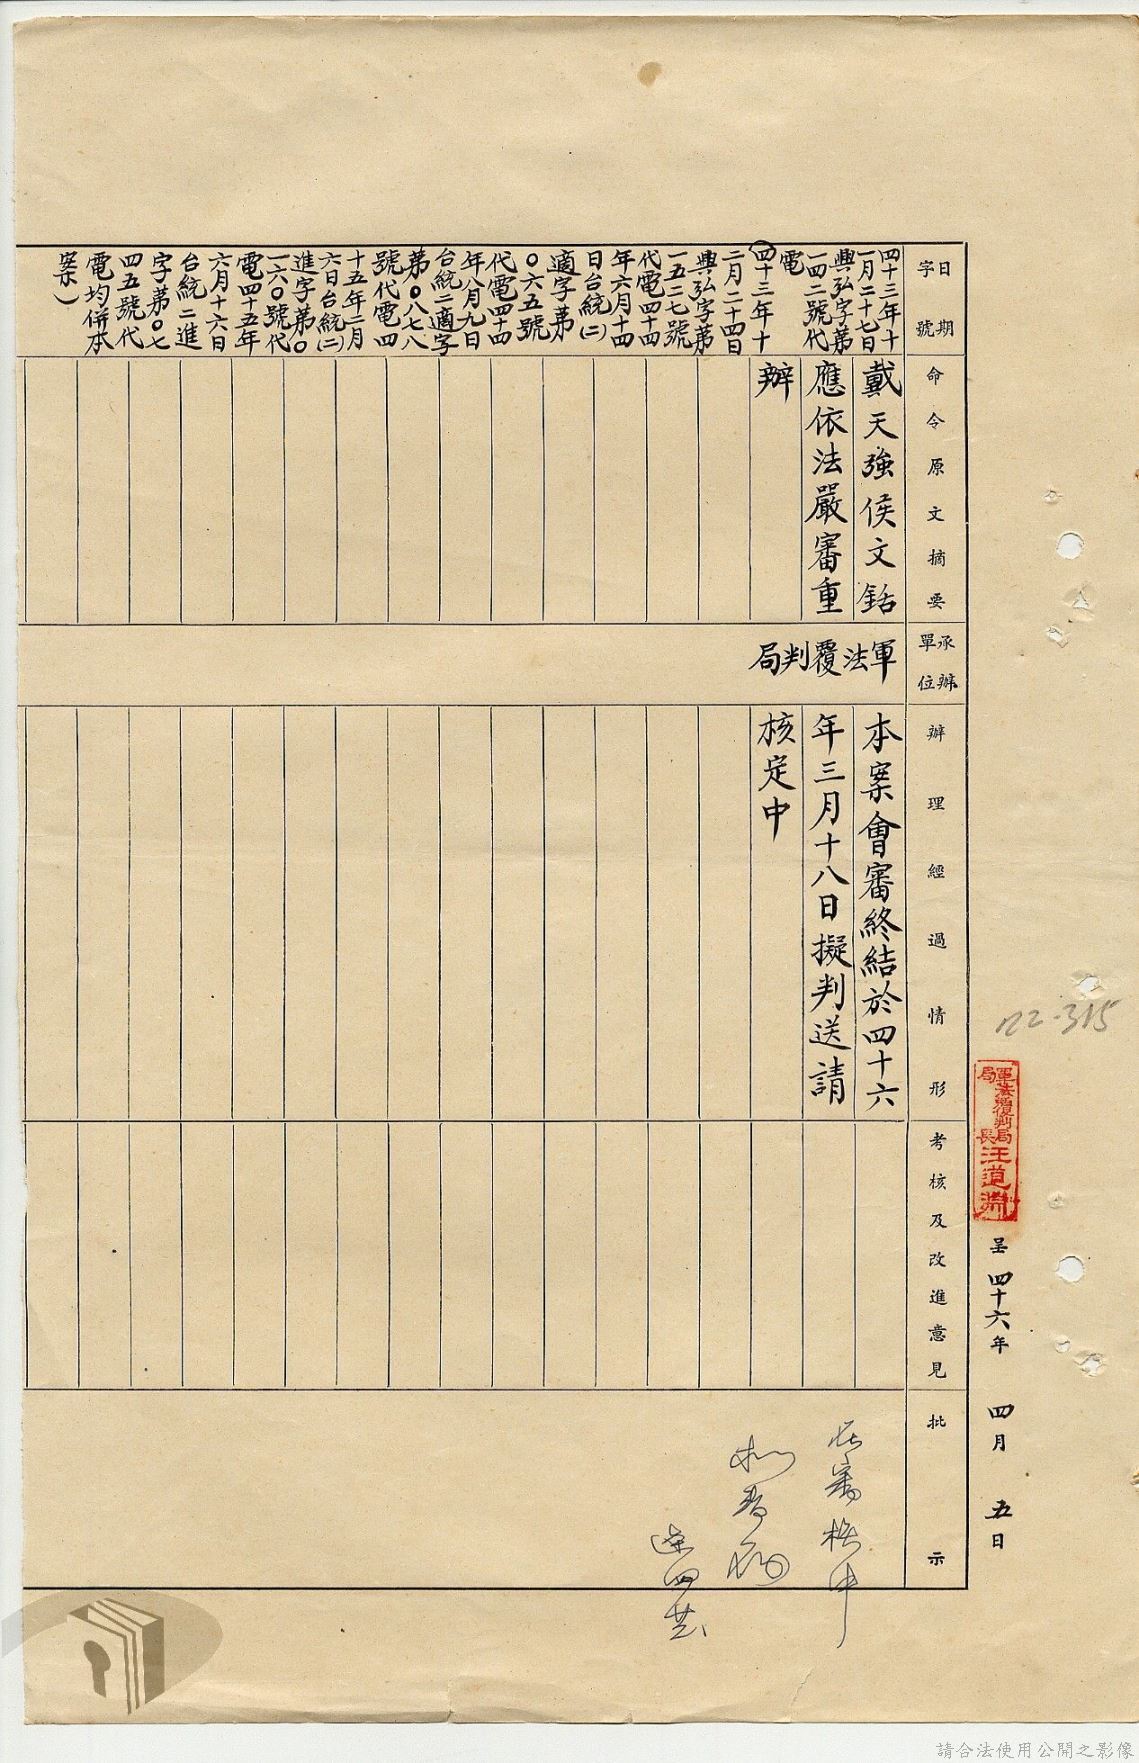 軍法覆判局局長汪道淵
呈 四十六年 四月 五日
日期字號
命令原文摘要
承辦單位
辦理經過情形
考核及改進意見
批示
四十三年十
一月二十七日
興弘字第
一四二號代
電
(四十三年十
二月二十四日
興弘字第
一五二七號
代電四十四
年六月十四
日台統(二)
適字第
○六五號
代電四十四
年八月九日
台統二適字
第○八七八
號代電四
十五年二月
六日台統(二)
進字第○
一六○號代
電四十五年
六月十六日
台統二進
字第○七
四五號代
電均併本
案)
戴天強侯文鈷
應依法嚴審重
辦
軍法覆判局
本案會審終結於四十六
年三月十八日擬判送請
核定中
請合法使用公開之影像